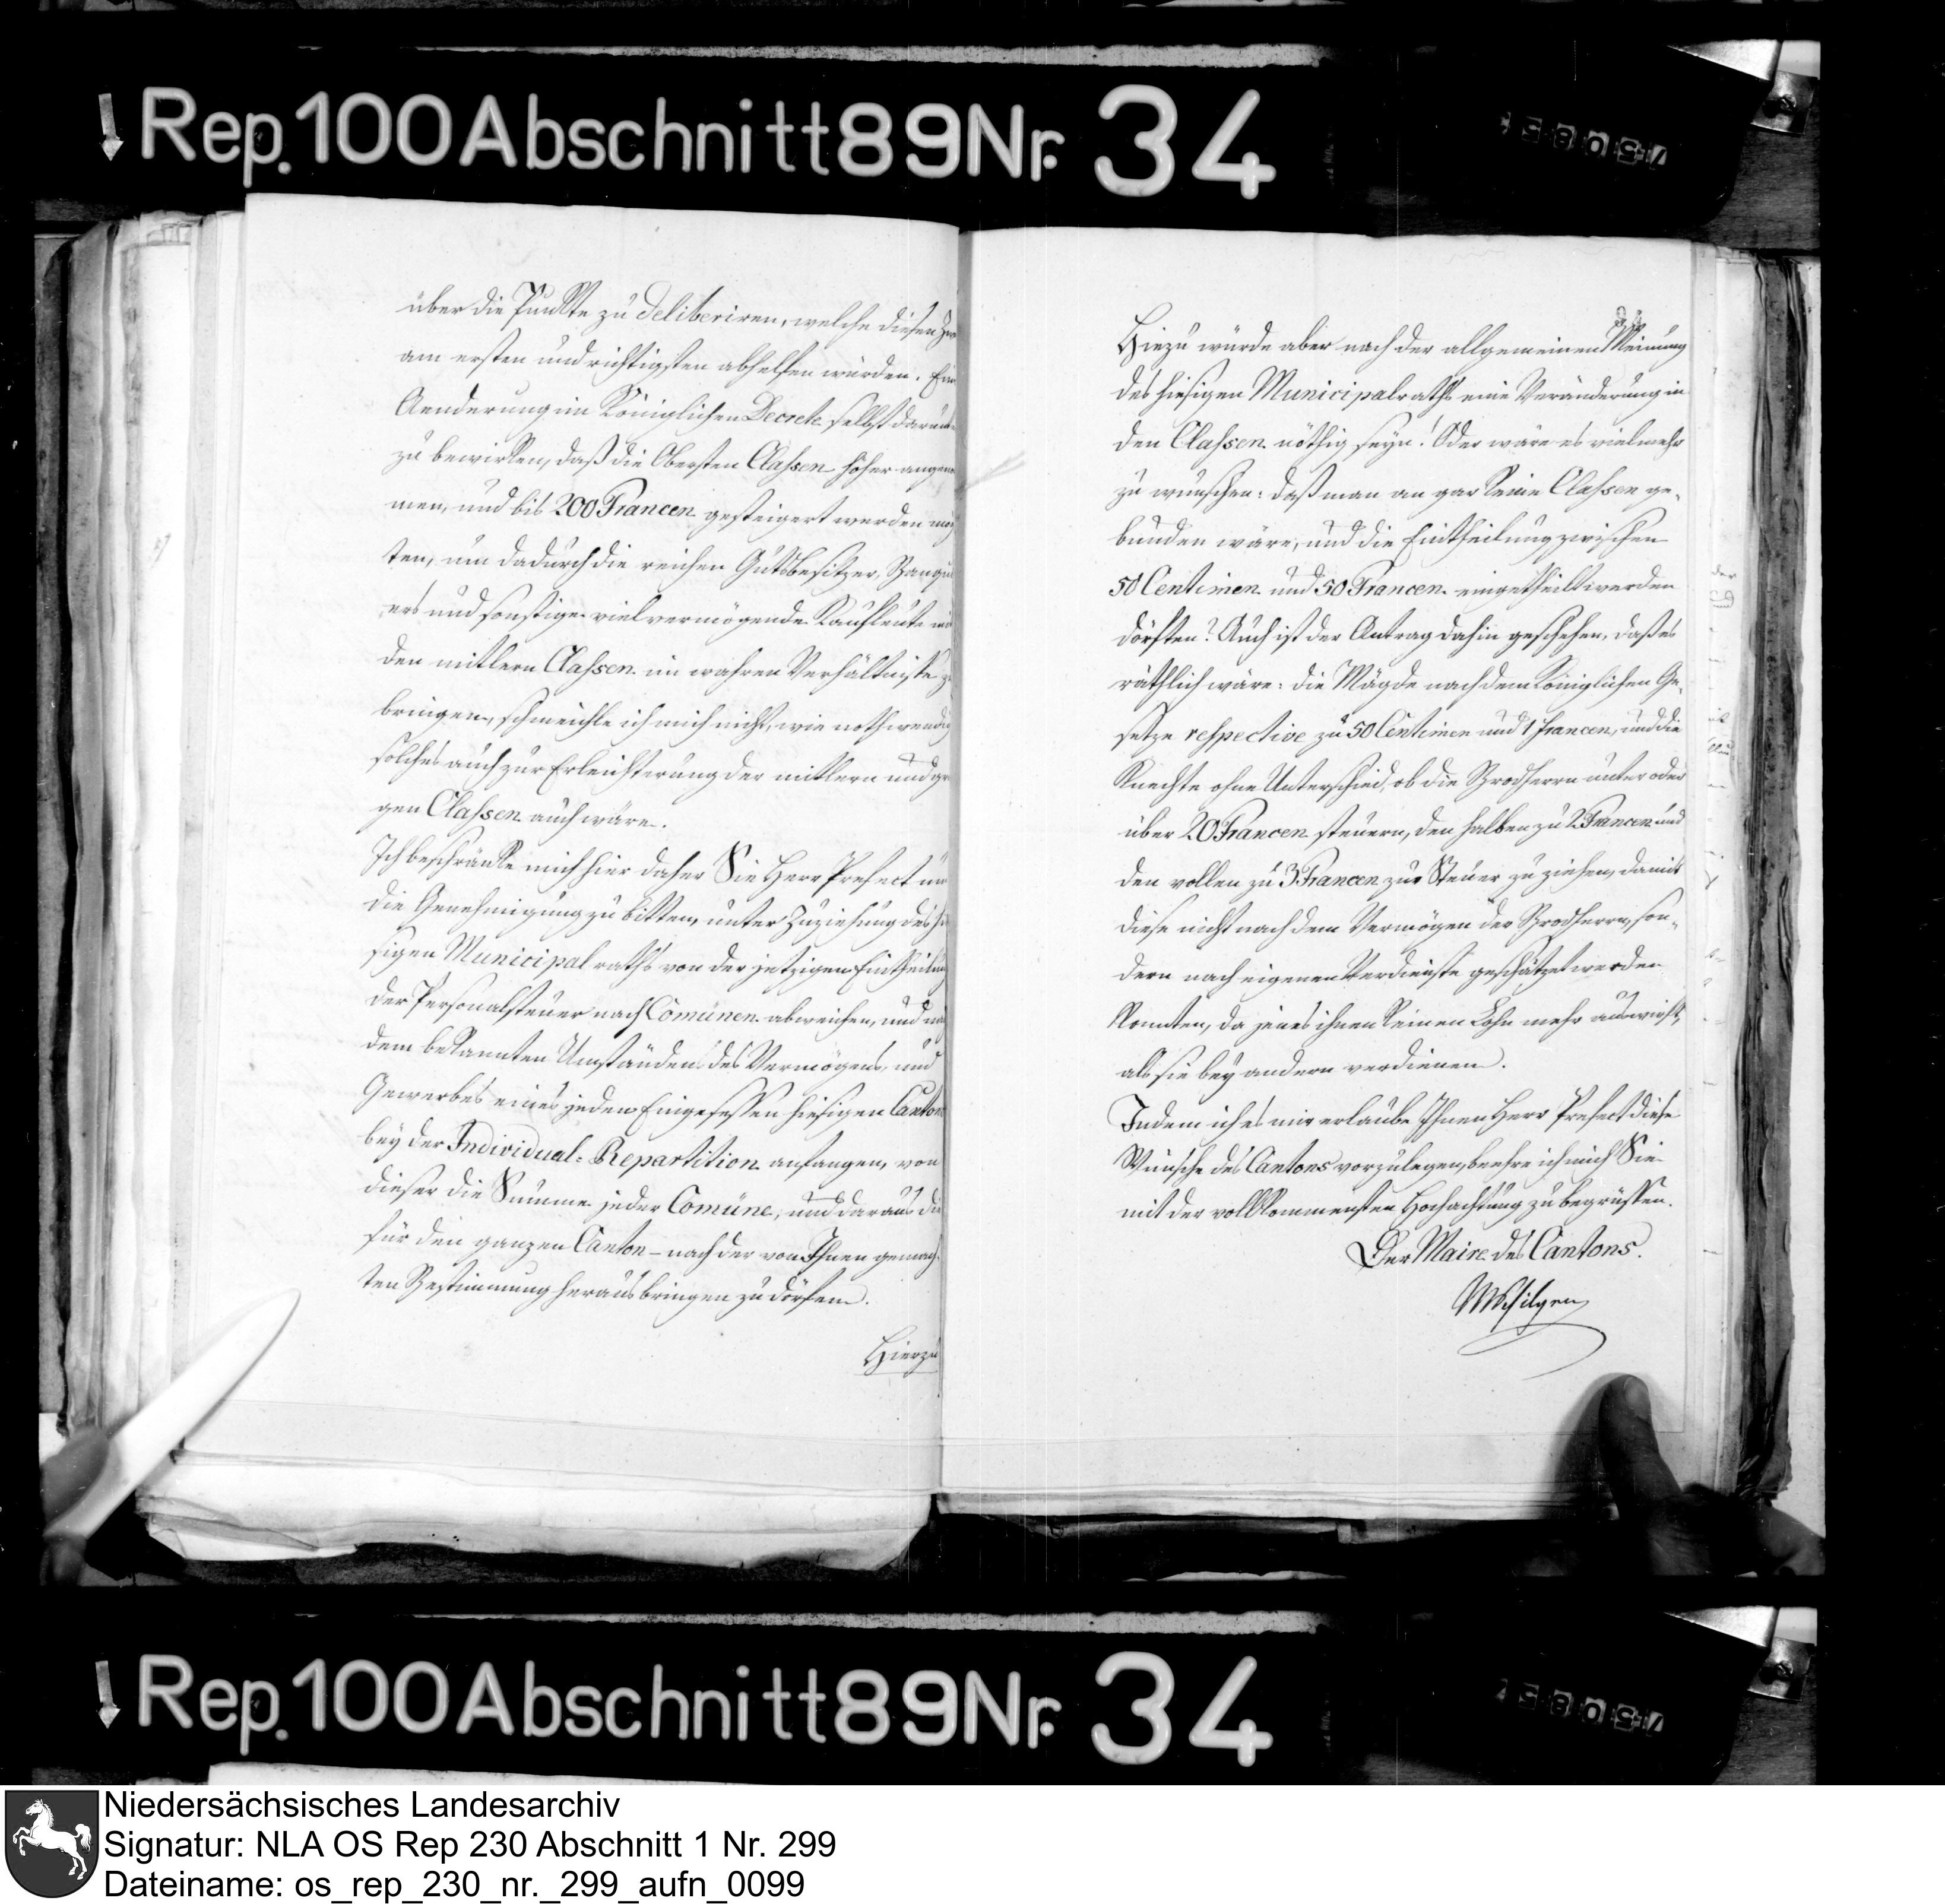 Rep. 100 Abschnitt 89 Nr. 34
über die Punkte zu deliberiren, welche diesen
am ersten und richtigsten abhelfen würden. Eine
Aenderung im Königlichen Decrete selbst
zu bewirken, daß die Obersten Classen höher
men, und bis 200 Francen gesteigert werden
ten, um dadurch die reichen Gutsbesitzer,
ers und sonstige vielvermögende Kaufleute mit
den mitlern Classen im wahren Verhältniße zu
bringen, schmeichle ich mich nicht, wie nothwendig
solches auch zur Erleichterung der mittlern und
gen Classen auch wäre.
Ich beschränke mich hier daher Sie Herr Prefect um
die Genehmigung zu bitten, unter Zuziehung des
sigen Municipalraths von der jetzigen Eintheilung
der Personalsteuer nach Comünen abweichen, und
dem bekannten Umständen des Vermögens, und
Gewerbes eines jeden Eingesessen hiesigen Cantons
bey der Individual-Repartition anfangen, von
dieser die Summe jeder Comüne, und daraus die
für den ganzen Canton – nach der von Ihnen gemach-
ten Bestimmung herausbringen zu dörfen.
Hierzu
Hiezu würde aber nach der allgemeinen Meinung
des hiesigen Municipalraths eine Veränderung in
den Classen nöthig seyn! Oder wäre es vielmehr
zu wünschen: daß man an gar keine Classen ge-
bunden wäre, und die Eintheilung zwischen
50 Centimen und 50 Francen eingetheilt werden
dörften? Auch ist der Antrag dahin geschehen, daß es
räthlich wäre: die Mägde nach dem Königlichen Ge-
setze respective zu 50 Centimen und 1 francen, und die
Knechte ohne Unterschied, ob die Brodherrn unter oder
über 20 Francen steuern, den halben zu 2 Francen und
den vollen zu 3 Francen zur Steuer zu ziehen, damit
diese nicht nach dem Vermögen der Brodherrn, son-
dern nach eigenen Verdienste geschätzet werden
konnten, da jenes ihnen keinen Lohn mehr auswirft,
als sie bey andern verdienen.
Indem ich es mir erlaube Ihnen Herr Prefect diese
Wünsche des Cantons vorzulegen, beehre ich mich Sie
mit der vollkommensten Hochachtung zu begrüssen.
Der Maire des Cantons.
Rep. 100 Abschnitt 89 Nr. 34
Niedersächsisches Landesarchiv
Signatur: NLA OS Rep 230 Abschnitt 1 Nr. 299
Dateiname: os_rep_230_nr._299_aufn_0099